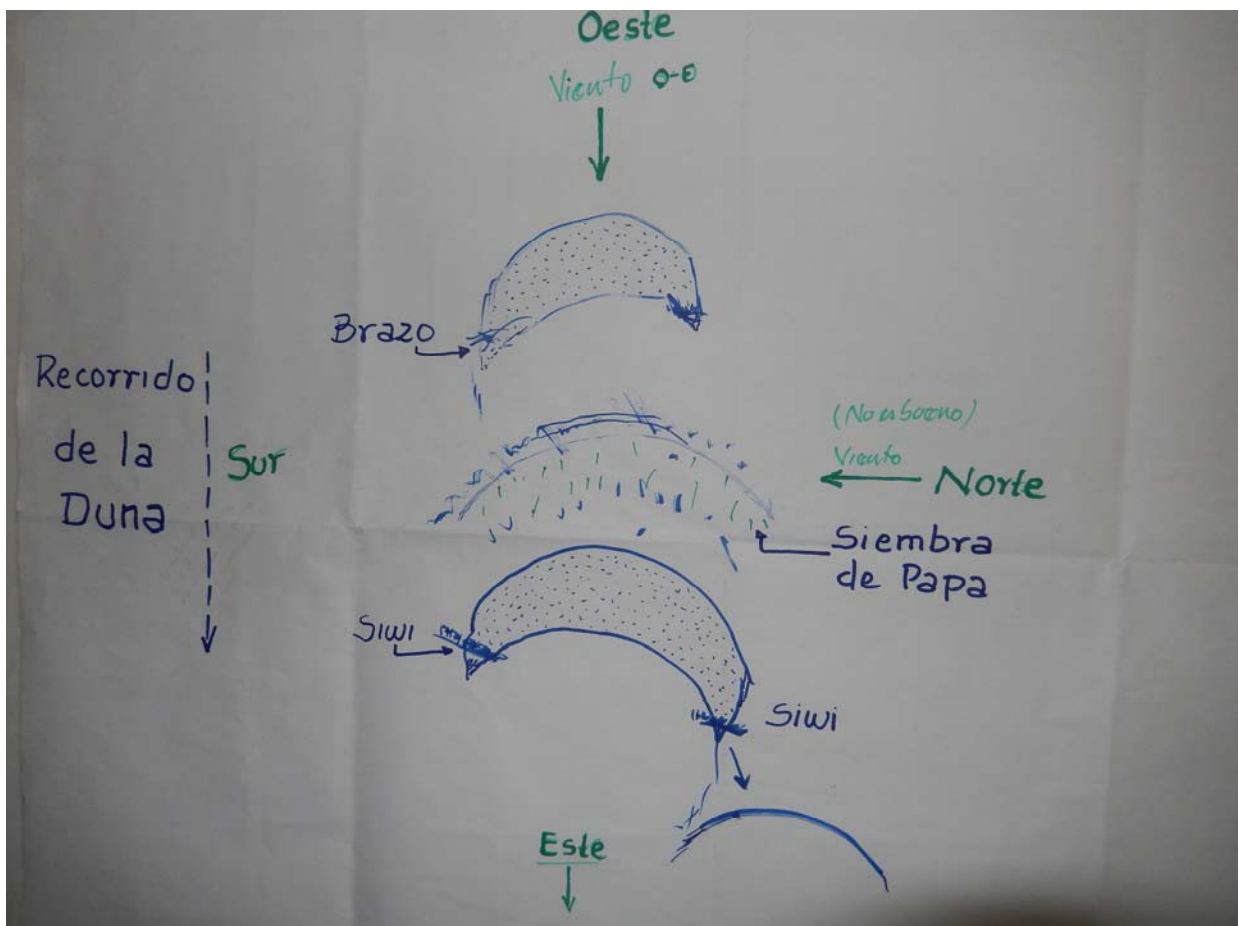 Oeste
Viento O-E
Brazo
Recorrido
de la
Duna
Sur
(No es bueno)
Viento
Norte
Siembra
de Papa
Siwi
Siwi
Este